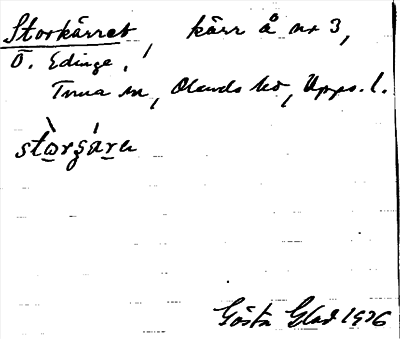 Storkärret, kärr å nr 3,
Ö. Edinge,
Tuna sn, Olands hd, Upps. l.
stòrʂára
Gösta Glad 1926